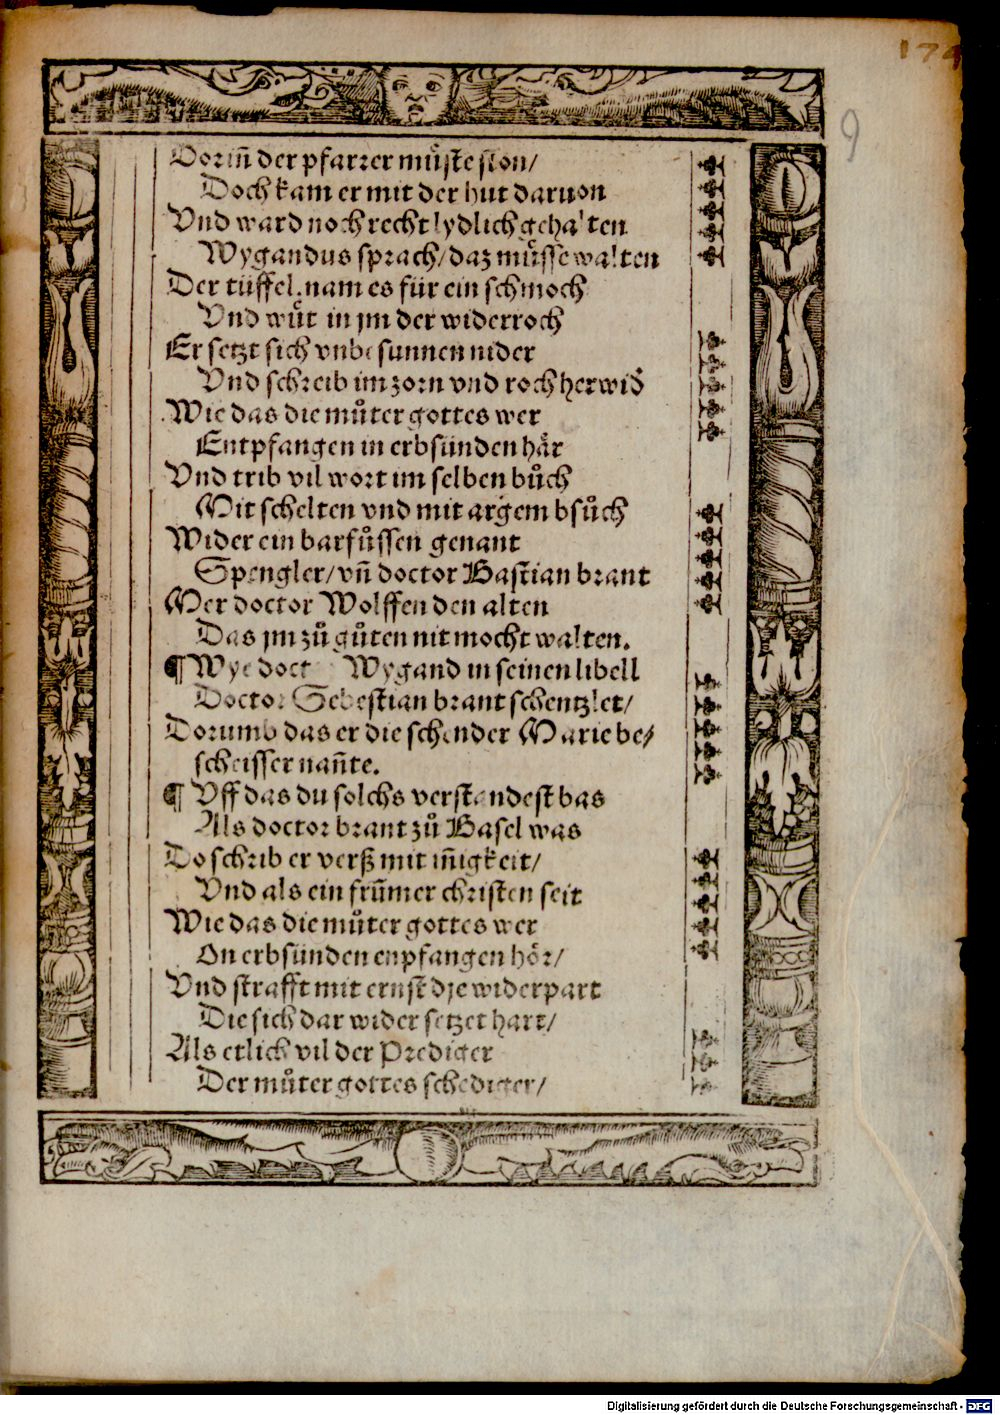 174
9
Dorin̄ der pfarrer muͤste ston/
Doch kam er mit der hut daruon
Vnd ward noch recht lydlich gehalten
Wygandus sprach/ daz muͤsse walten
Der tüffel. nam es für ein schmoch
Vnd wuͤt in jm der widerroch
Er setzt sich vnbesunnen nider
Vnd schreib im zorn vnd roch herwid̄
Wie das die muͦter gottes wer
Entpfangen in erbsünden haͤr
Vnd trib vil wort im selben buͦch
Mit schelten vnd mit argem bsuͦch
Wider ein barfuͦssen genant
Spengler/ vn̄ doctor Bastian brant
Mer doctor Wolffen den alten
Das jm zuͦ guͦten nit mocht walten.
¶ Wye doct Wygand in seinen libell
Doctor Sebestian brant schentzlet/
Dorumb das er die schender Marie be/
scheisser nan̄te.
¶ Vff das du solchs verstandest bas
Als doctor brant zuͦ Basel was
Do schrib er verß mit in̄igkeit/
Vnd als ein frūmer christen seit
Wie das die muͦter gottes wer
On erbsünden enpfangen hoͤr/
Vnd strafft mit ernst dje widerpart
Die sich dar wider setzet hart/
Als etlich vil der Prediger
Der muͦter gottes schediger/
Digitalisierung gefördert durch die Deutsche Forschungsgemeinschaft - DFG